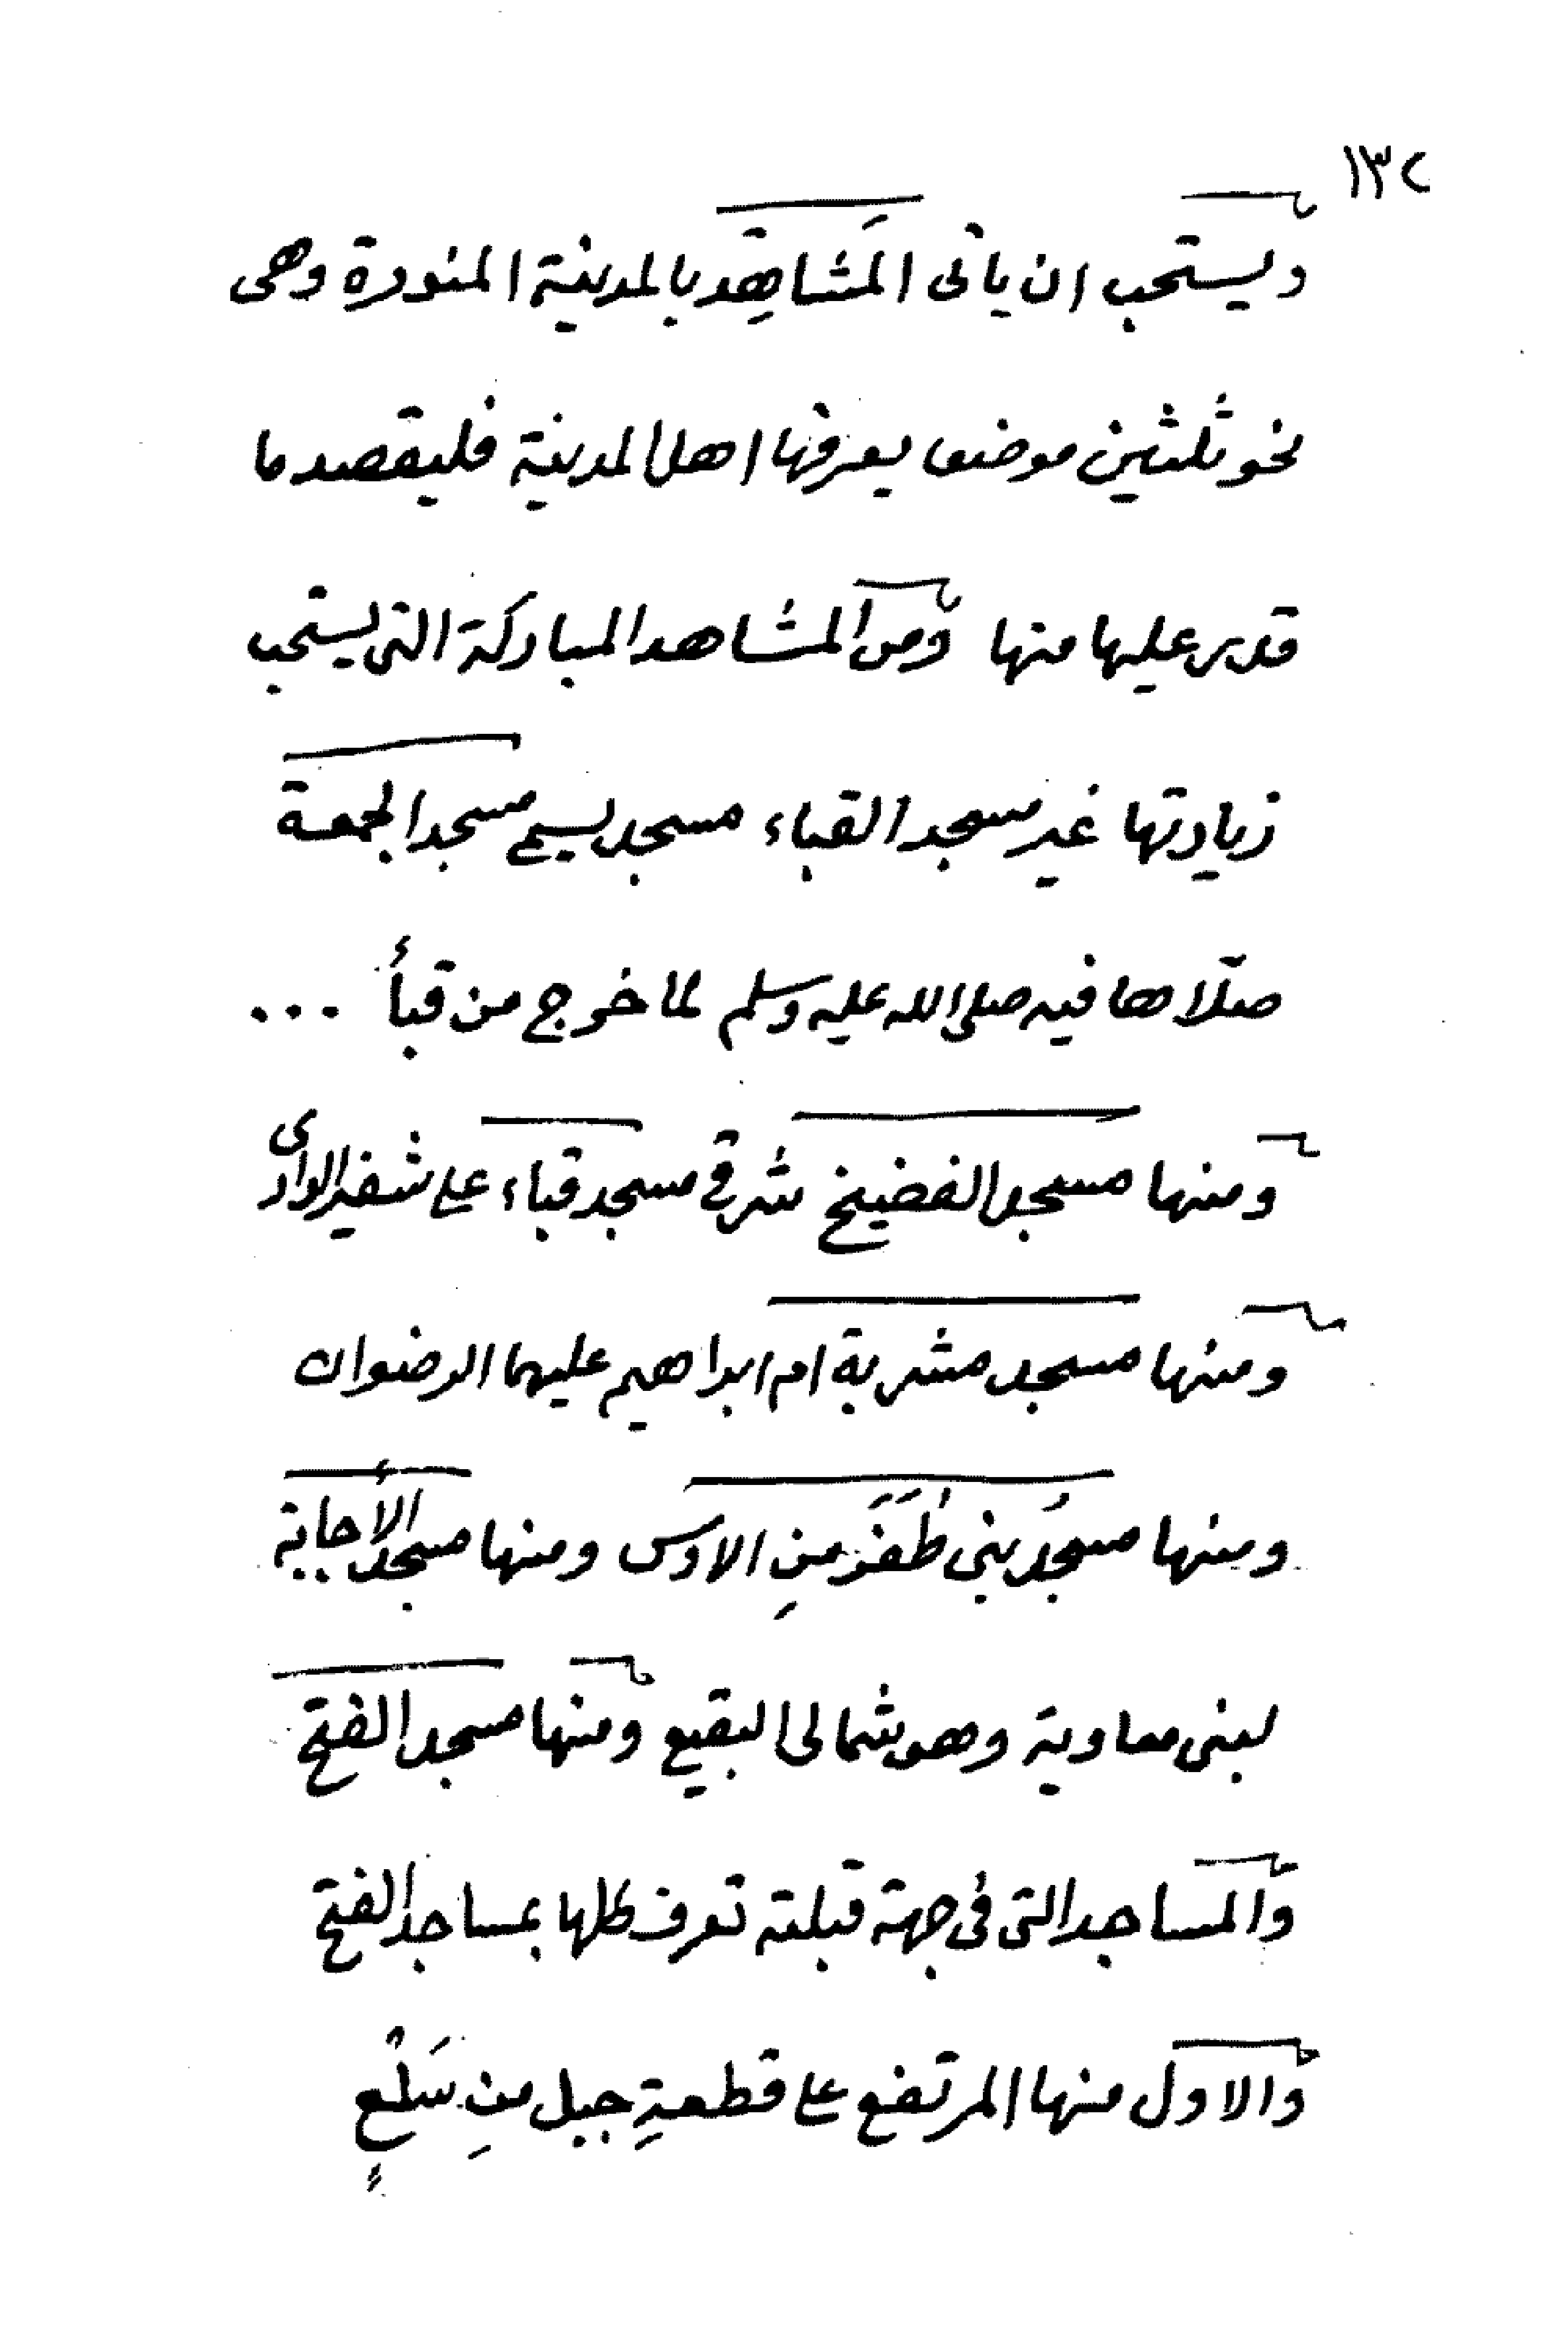 ١٣٢
ويستحب ان ياتى المَشاهِد بالمدينة المنورة وهى
نحو ثلثين موضعا يعرفها اهل المدينة فليقصد ما
قدر عليها منها ومن المشاهد المباركة التى يستحب
زيارتها غير مسجد القباء مسجد يسمى مسجد الجمعة
صلّاها فيه صلى الله عليه وسلم لما خرج من قبأ ...
ومنها مسجد الفضيخ شرقى مسجد قباء على شفير الوادى
ومنها مسجد مشربة ام ابراهيم عليهما الرضوان
ومنها مسجدُ بنى ظَفَر منِ الاوس ومنها مسجد الأجابة
لبنى معاوية وهو شمالى البقيع ومنها مسجد الفتح
والمساجد التى فى جهة قبلته تعرف كلها بمساجد الفتح
والاول منها المرتفع على قطعةِ جبل منِ سَلْعٍ